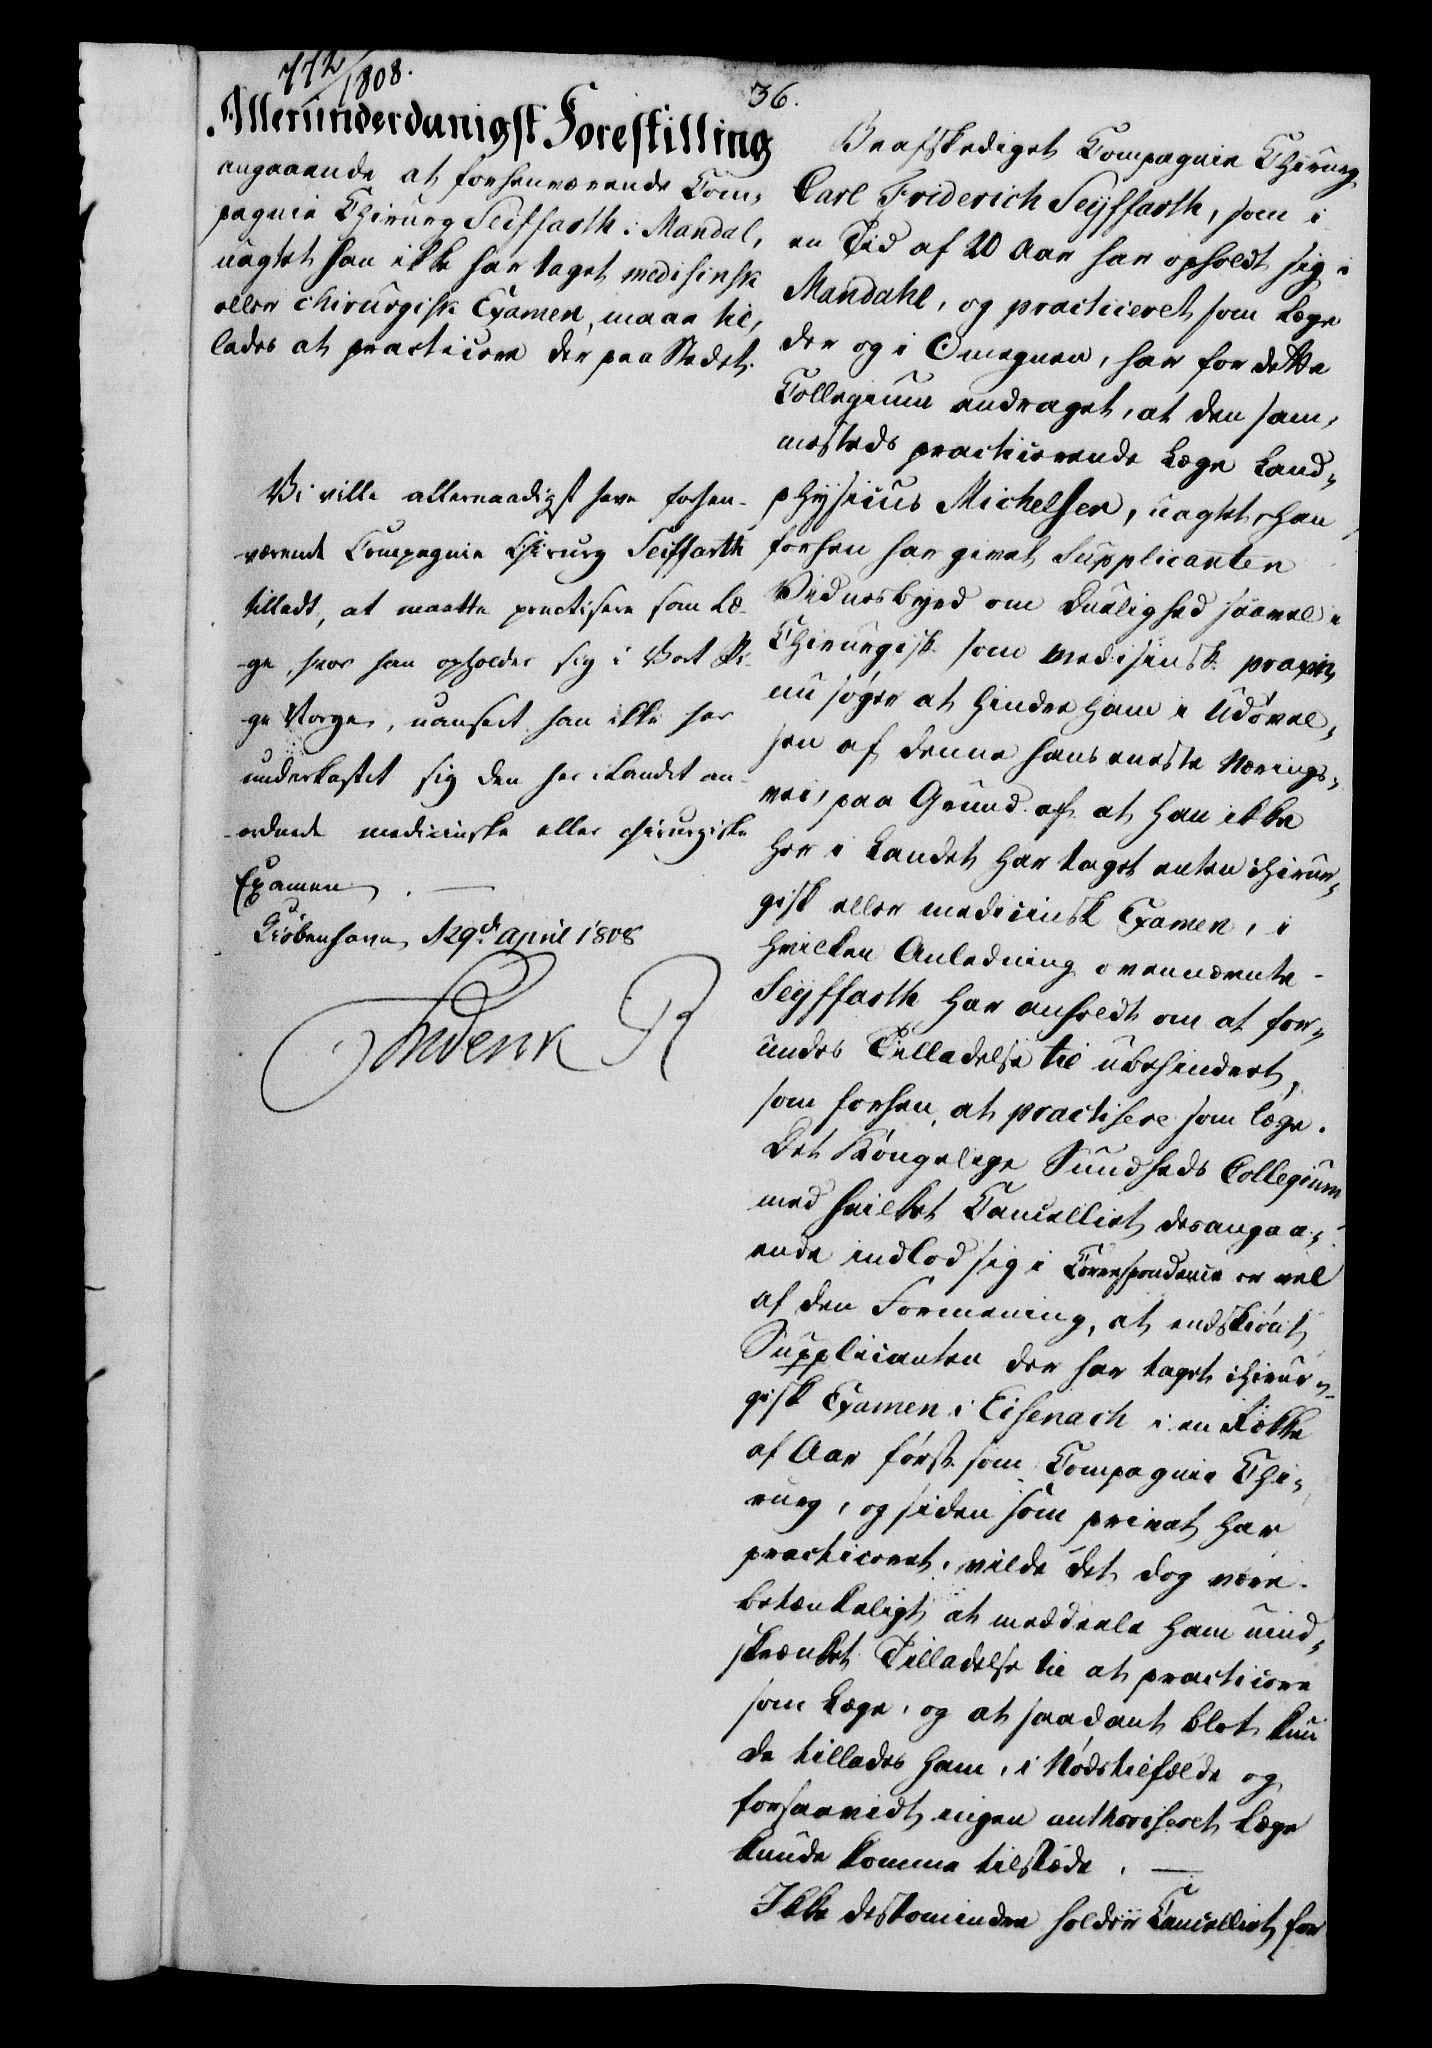 772/1808.
36.
Allerunderdanigst Forestilling
angaaende at forhenværende Com„
pagnie Chirurg Seiffarth i Mandal,
uagtet han ikke har taget medisinsk
eller chirurgisk Examen, maae til„
lades at practicere der paa Stedet.
Vi ville allernaadigst have forhen-
-værende Compagnie Chirurg Seiffarth
tilladt, at maatte practisere som Læ-
-ge, hvor han opholder sig i Vort Ri-
ge Norge, uanseet han ikke har
underkastet sig den her i Landet an-
-ordnede medicinske eller chirurgiske
Examen. —
Kiöbenhavn, d 29de April 1808
Friderik R
Beafskediget Compagnie Chirurg
Carl Friderich Seyffarth, som i
en Tid af 20 Aar har opholdt sig i
Mandahl, og practiceret som Læge
der og i Omegnen, har for dette
Collegium andraget, at den sam„
mesteds practicerende Læge Land„
physicus Michelsen, uagtet han
forhen har givet Supplicanten
Vidnesbyrd om Duelighed saavel i
Chirurgisk som medisinsk praxin
nu søger at hindre ham i Udøvel„
sen af denne hans eneste Nærings„
vei, paa Grund af at han ikke
her i Landet har taget enten chirur„
gisk eller medicinsk Examen, i
hvilken Anledning ovennævnte
Seyffarth har anholdt om at for„
undes Tilladelse til ubehindret,
som forhen, at practisere som læge.
Det Kongelige Sundheds Collegium
med hvilket Cancelliet desangaa„
ende indlod sig i Correspondence er vel
af den Formening, at endskiønt
Supplicanten der har taget chirur„
gisk Examen i Eisenach i en Række
af Aar først som Compagnie Chi„
rurg, og siden som privat har
practiceret, vilde det dog være
betænkeligt at meddeele ham uind„
skrænket Tilladelse til at practicere
som Læge, og at saadant blot kun
de tillades ham, i Nødstilfælde og
forsaavidt ingen authoriseret Læge
kunde komme tilstæde. —
Ikke destomindre holder Cancelliet for